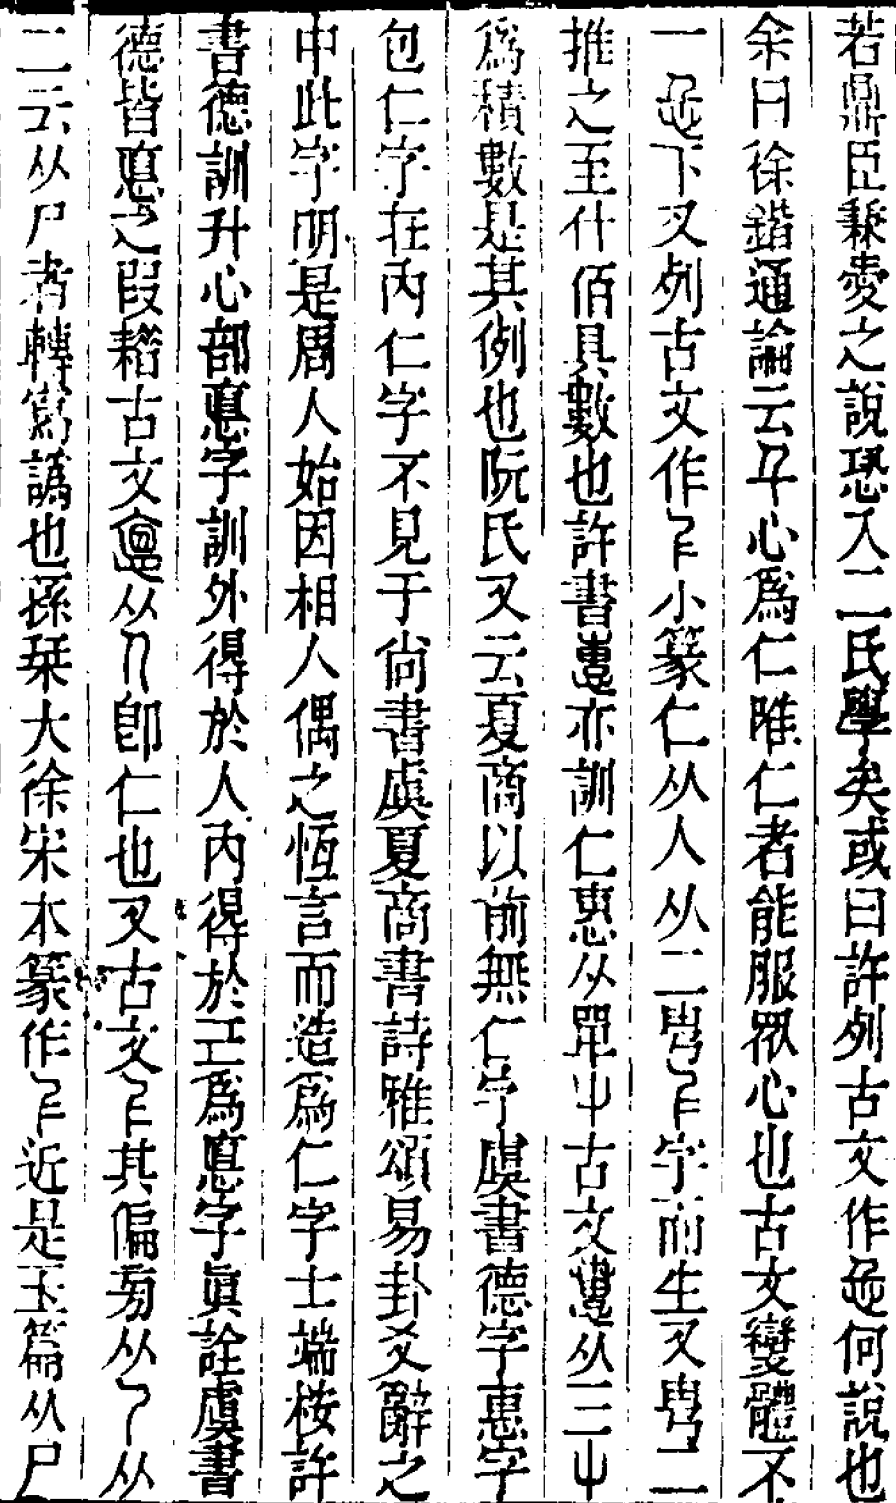 若鼎臣兼愛之說恐入二氏學矣或曰許列古文作忎何說也
余曰徐鍇通論云千心爲仁唯仁者能服眾心也古文變體不
一忎下又列古文作𡰥小篆仁从人从二𠧟𡰥字而生又𠧟二
推之至什佰具數也許書惠亦訓仁惠从叀屮古文𢤲从三屮
爲積數是其例也阮氏又云夏商以前無仁字虞書德字惠字
包仁字在內仁字不見于尙書虞夏商書詩雅頌易卦爻辭之
中此字明是周人始因相人偶之恆言而造爲仁字士端桉許
書德訓升心部悳字訓外得於人內得於己爲悳字眞詮虞書
德皆悳之叚耤古文悳从𠆢卽仁也又古文𡰥其偏菊从乁从
二云从尸者轉寫譌也孫栞大徐宋本篆作𡰥近是玉篇从尸